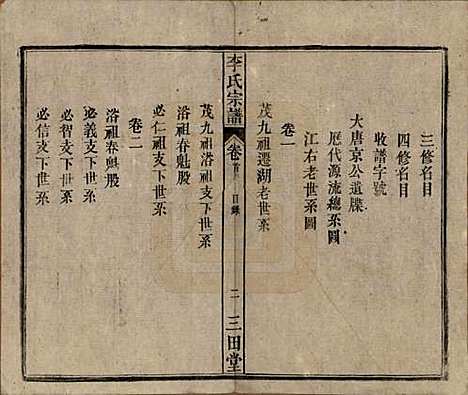 三修名目
四修名目
收譜字號
大唐京公道牒
歷代源流總系圖
江右老世系圖
卷一
茂九祖遷湖老世系
李氏宗譜
卷首
目錄
二
三田堂
茂九祖洛祖支下世系
洛祖春魁股
必仁祖支下世系
卷二
洛祖春魁股
必義支下世系
必智支下世系
必信支下世系